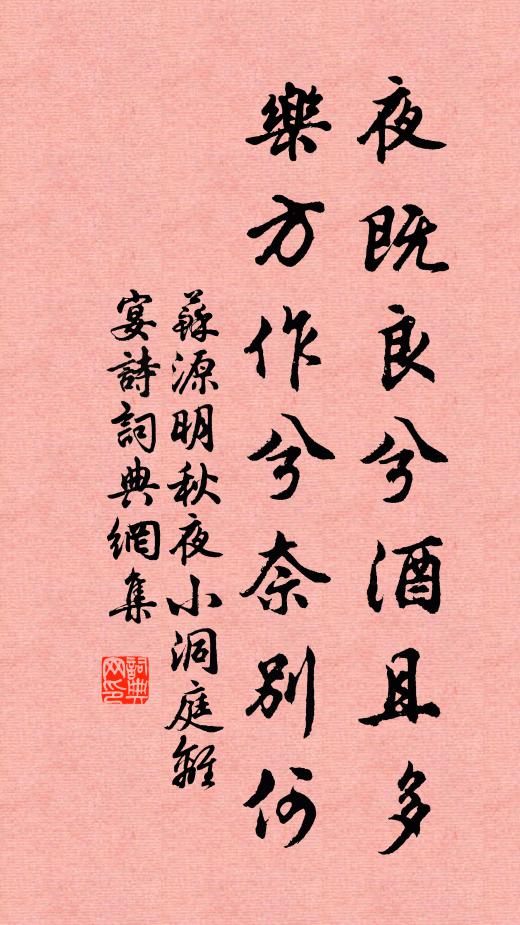 夜既良兮酒且多
樂方作兮奈別何
蘇源明秋夜小洞庭離
宴詩詞典網集
詞典网印